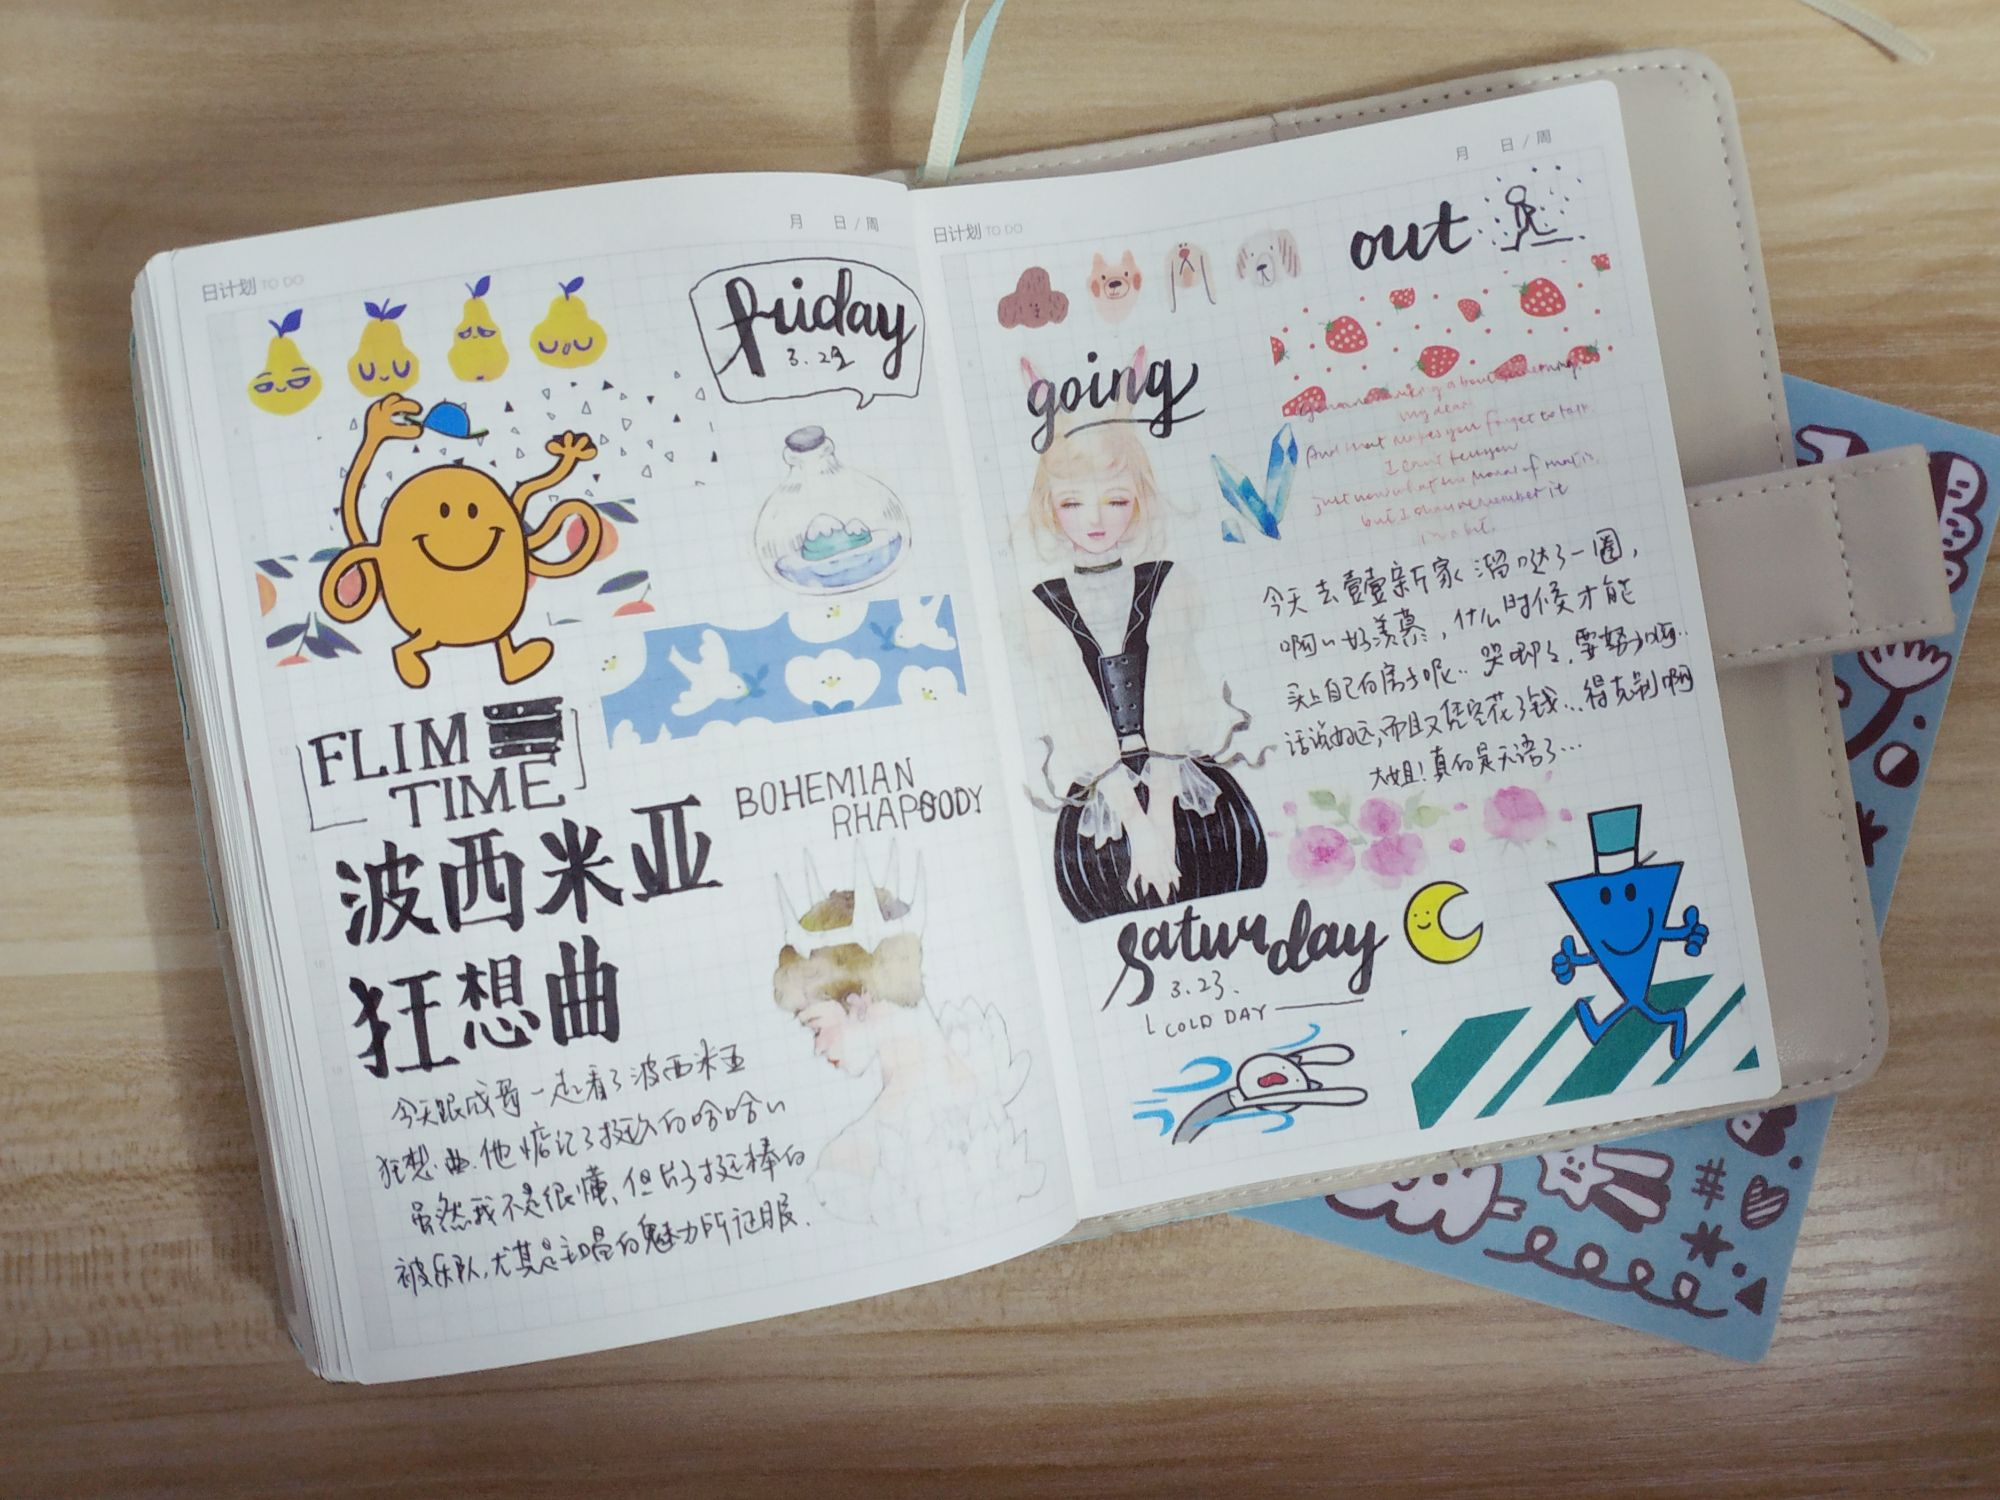 日计划 TO DO
月 日/周
friday
3.22
FLIM
TIME
BOHEMIAN
RHAPSODY
波西米亚
狂想曲
今天跟成哥一起看了波西米亚
狂想曲.他惦记了挺久的哈哈~
虽然我不是很懂,但片子挺棒的
被乐队,尤其是主唱的魅力所征服.
日计划 TO DO
月 日/周
out
going
my dear
And that makes you forget to talk.
I can't tell you
just now what the moral of that is,
but I shall remember it
in a bit.
今天去壹壹新家溜哒了一圈,
啊~好羡慕,什么时候才能
买上自己的房子呢..哭唧了,要努力啊..
话说好远,而且又凭空花了钱...得克制啊
大姐!真的是无语了...
saturday
3.23.
COLD DAY